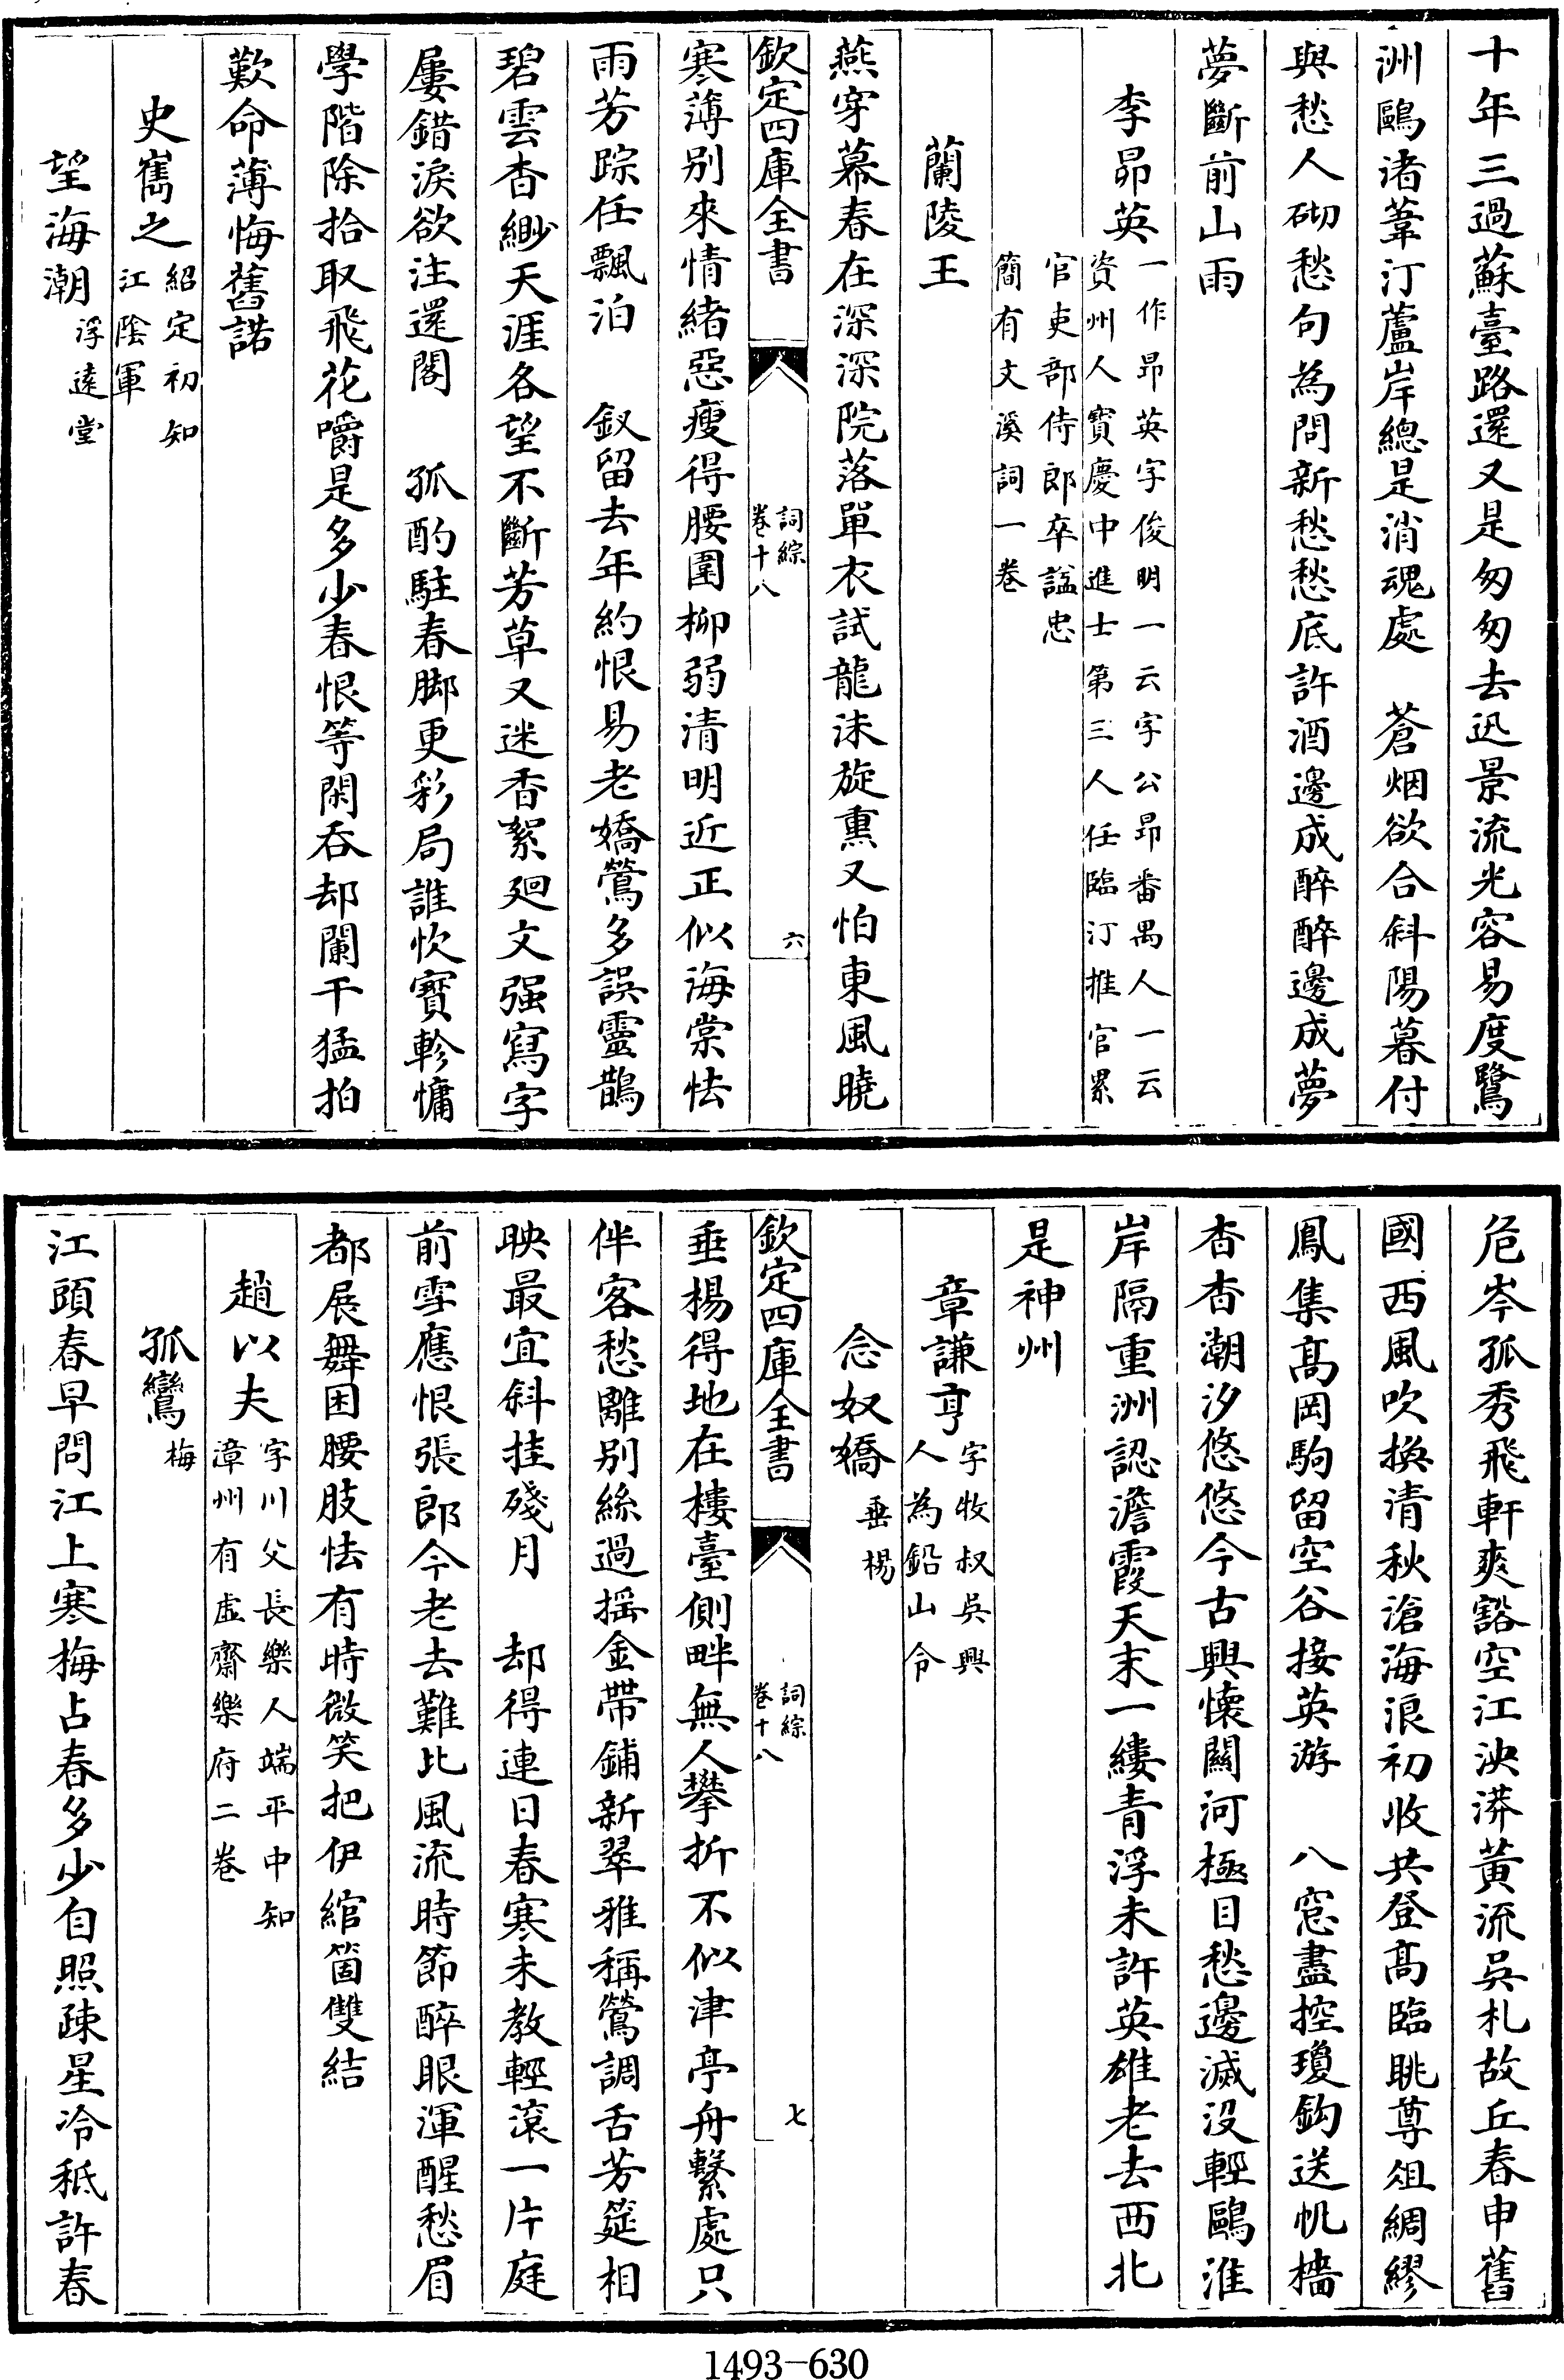 十年三過蘇臺路還又是匆匆去迅景流光容易度鷺
洲鷗渚葦汀蘆岸總是消魂處　蒼烟欲合斜陽暮付
與愁人砌愁句為問新愁愁底許酒邊成醉醉邊成夢
夢斷前山雨
李昴英
一作昴英字俊明一云字公昴番禺人一云
資州人寶慶中進士第三人任臨汀推官累
官吏部侍郎卒諡忠
簡有文溪詞一卷
蘭陵王
燕穿幕春在深深院落單衣試龍沬旋熏又怕東風曉
欽定四庫全書
詞綜
卷十八
六
寒薄别來情緒惡瘦得腰圍柳弱清明近正似海棠怯
雨芳踪任飄泊　釵留去年約恨易老嬌鶯多誤靈鵲
碧雲杳緲天涯各望不斷芳草又迷香絮廻文强寫字
屢錯淚欲注還閣　孤酌駐春脚更彩局誰忺寶軫慵
學階除拾取飛花嚼是多少春恨等閑吞却闌干猛拍
歎命薄悔舊諾
史雋之
紹定初知
江陰軍
望海潮
浮遠堂
危岑孤秀飛軒爽豁空江泱漭黃流吳札故丘春申舊
國西風吹換清秋滄海浪初收共登髙臨眺尊俎綢繆
鳳集髙岡駒留空谷接英游　八窓盡控瓊鈎送帆檣
杳杳潮汐悠悠今古興懷關河極目愁邊滅没輕鷗淮
岸隔重洲認澹霞天末一縷青浮未許英雄老去西北
是神州
章謙亨
字牧叔吳興
人為鉛山令
念奴嬌
垂楊
欽定四庫全書
詞綜
卷十八
七
垂楊得地在樓臺側畔無人攀折不似津亭舟繫處只
伴客愁離别絲過揺金帶鋪新翠雅稱鶯調舌芳筵相
映最宜斜挂殘月　却得連日春寒未教輕滾一片庭
前雪應恨張郎今老去難比風流時節醉眼渾醒愁眉
都展舞困腰肢怯有時微笑把伊綰箇雙結
趙以夫
字川父長樂人端平中知
漳州有虛齋樂府二卷
孤鸞
梅
江頭春早問江上寒梅占春多少自照疎星冷秪許春
1493-630